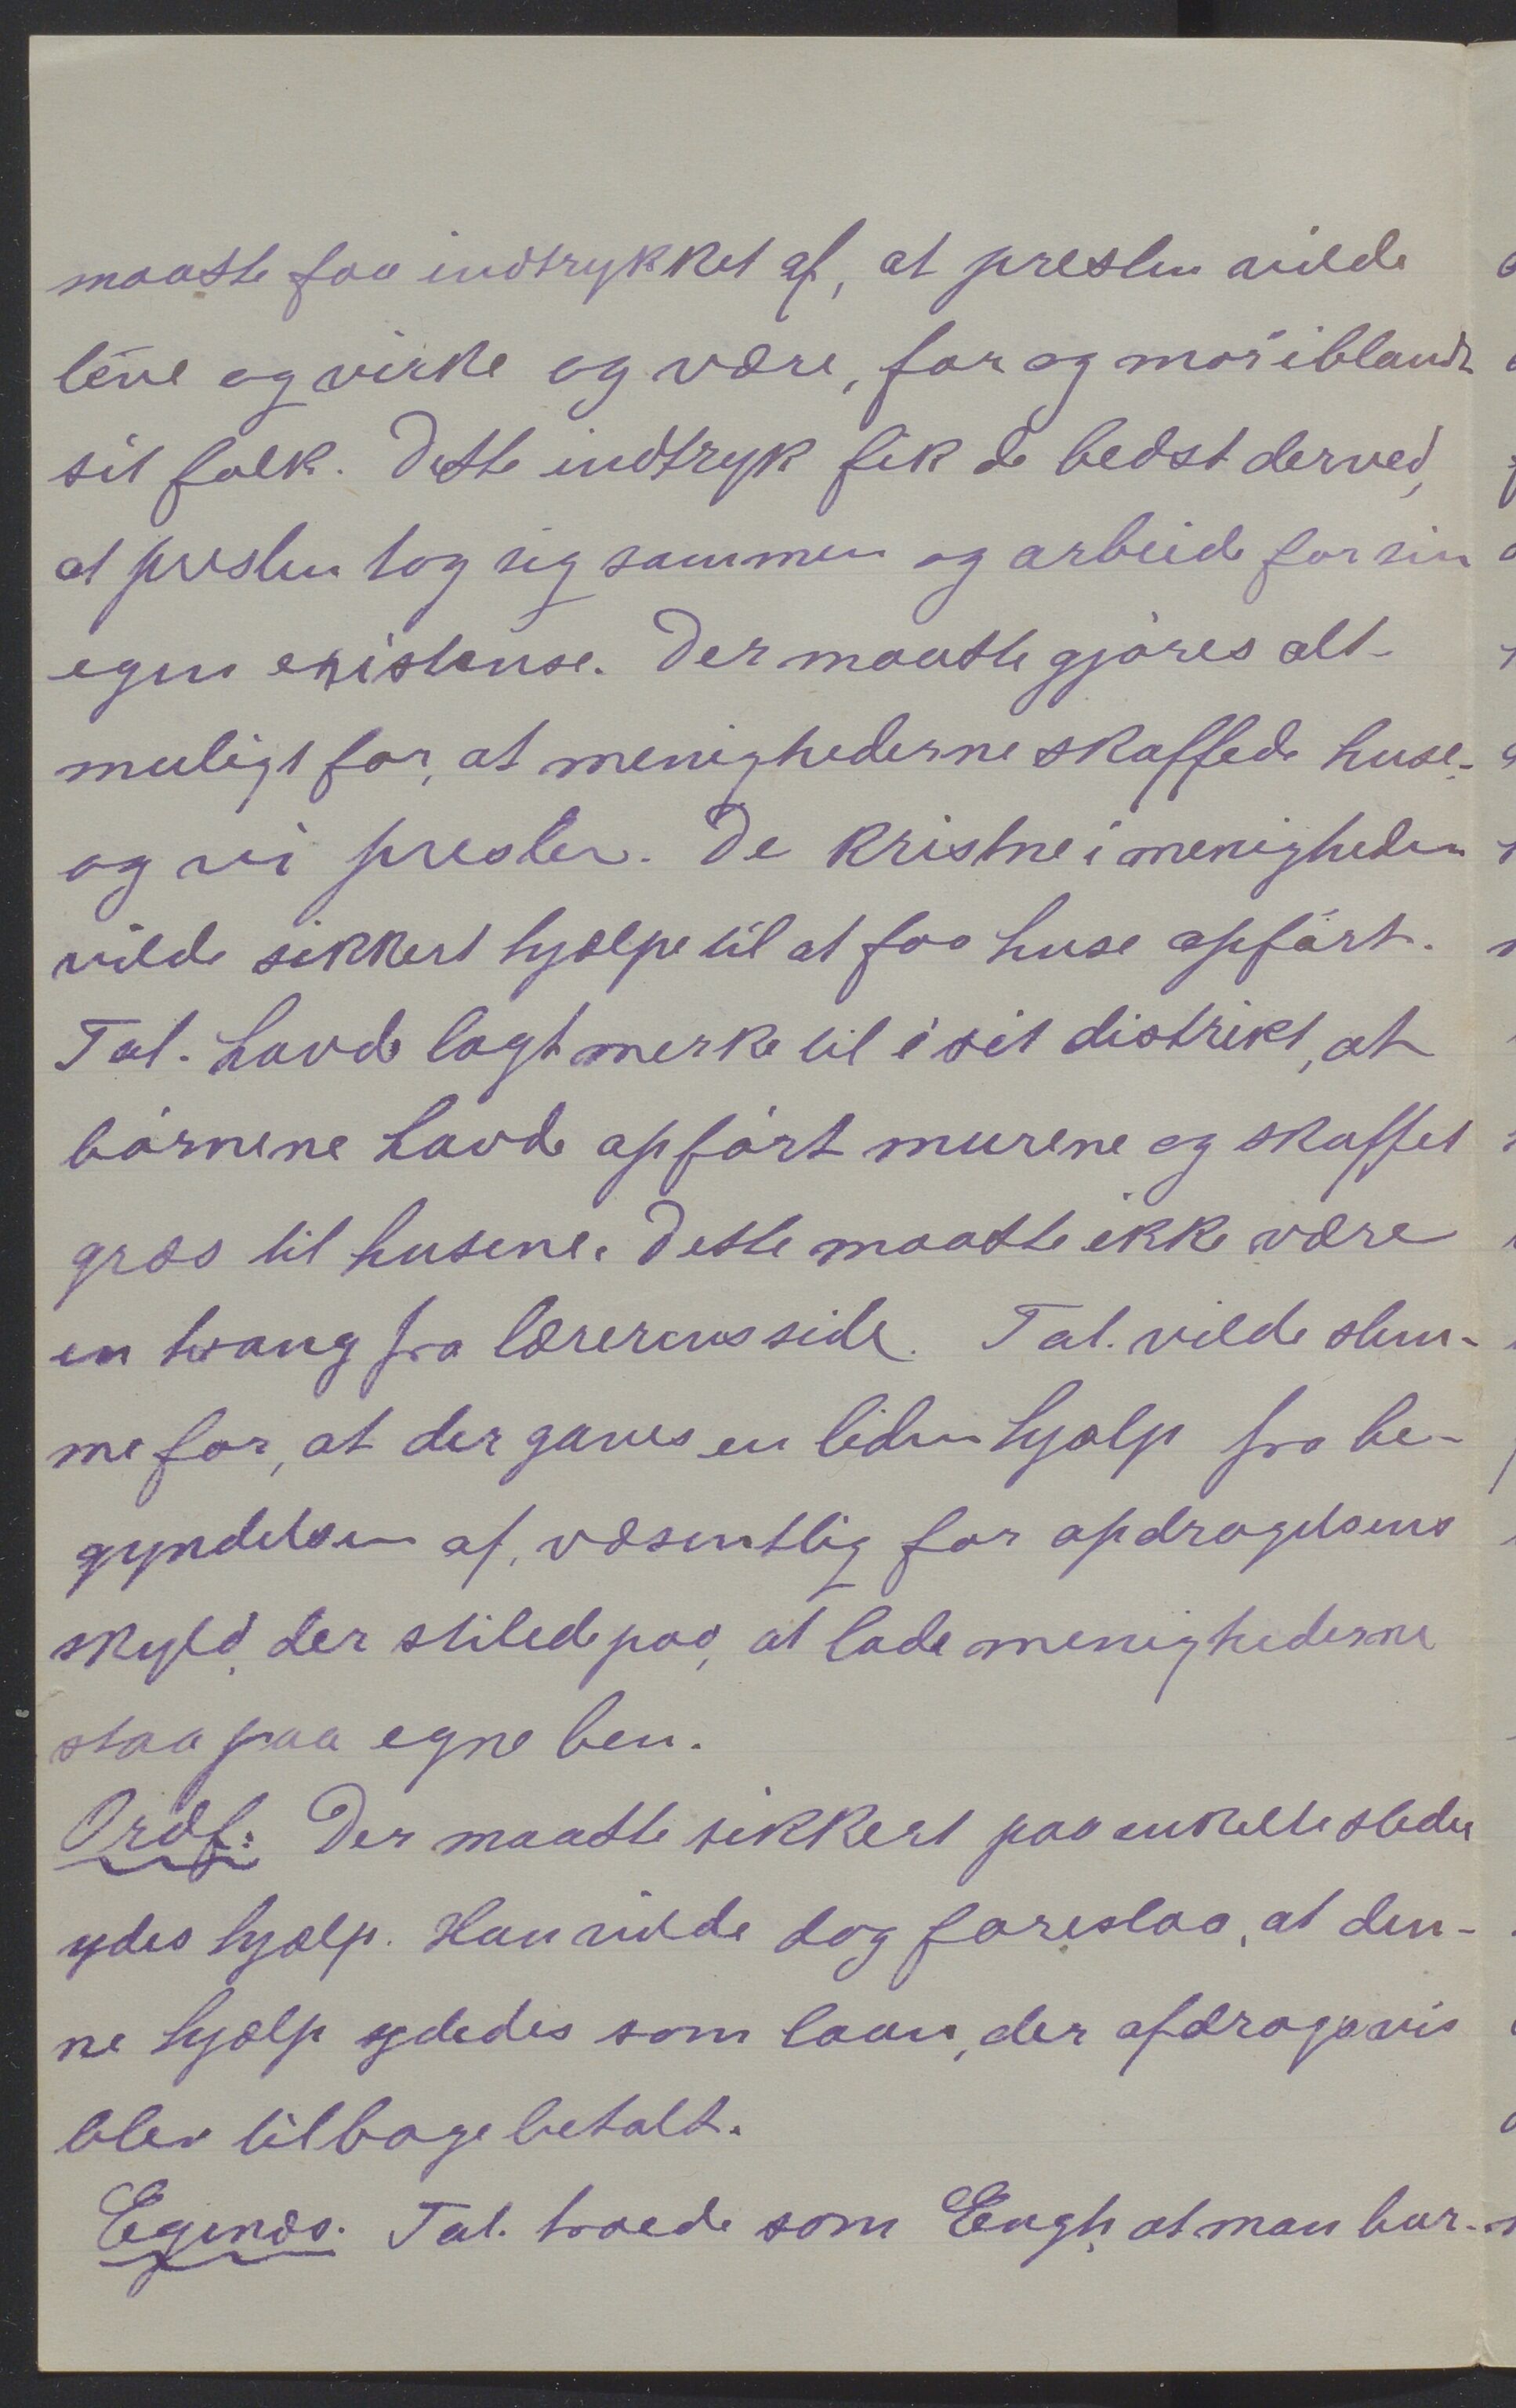 maatte faa indtrykket af, at presten vilde
leve og virke og være, far og mor iblandt
sit folk. Dette indtryk fik de bedst derved,
at presten tog sig sammen og arbeide for sin
egen existense. Der maatte gjøres alt-
muligt for, at menighederne skaffede huse-
og vi prester. De kristne i menigheden
vilde sikkert hjælpe til at faa huse opført.
Tal. havde lagt merke til i sit distrikt, at
børnene havde opført murene og skaffet
græs til husene. Dette maatte ikke være
en tvang fra lærerens side. Tal. vilde stem-
me for, at der gaves en liden hjælp fra be-
gyndelsen af, væsentlig for opdragelsens
skyld, der stilede paa, at lade menighederne
staa paa egne ben.
Ordf: Der maatte sikkert paa enkelte steder
ydes hjælp. Han vilde dog foreslaa, at den-
ne hjælp ydedes som laan, der afdragsvis
blev tilbagebetalt.
Egenæs. Tal. troede som Engh, at man bur-